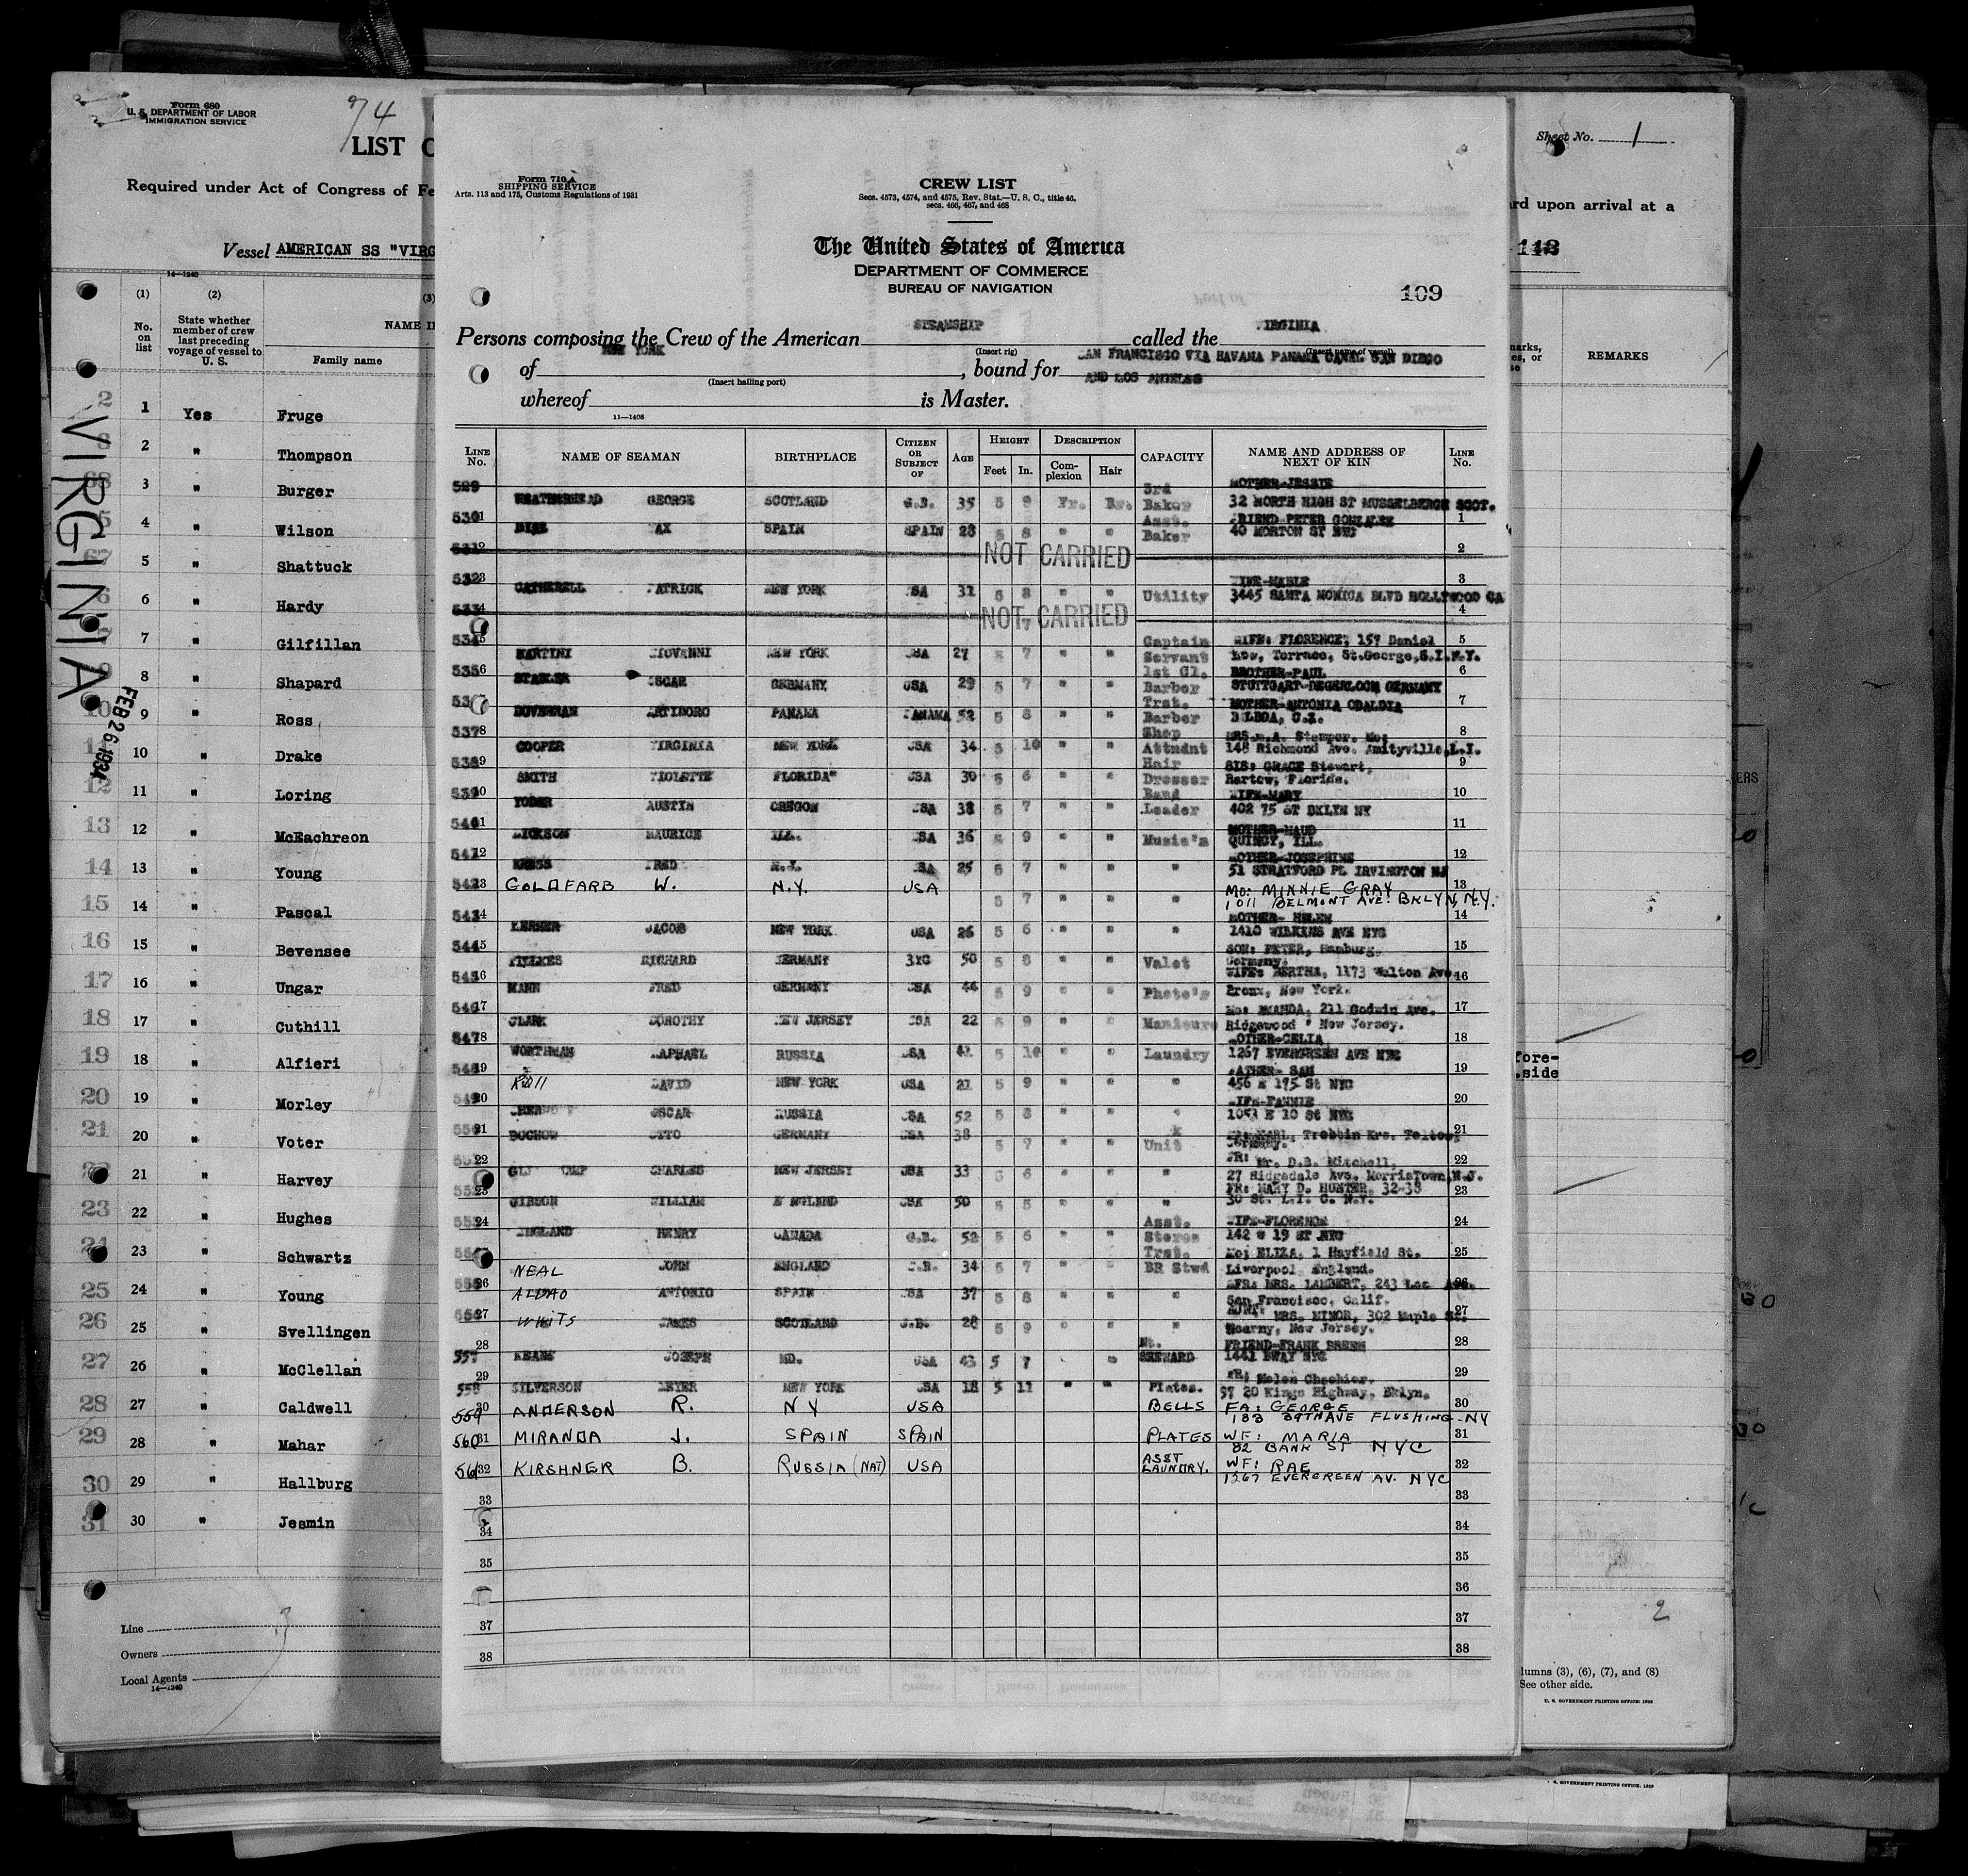 Form 680
U. S. DEPARTMENT OF LABOR
IMMIGRATION SERVICE
74
LIST
Required under Act of Congress of Fe
Vessel AMERICAN SS "VIRG
14—1240
(1) (2) (3)
No. on list
State whether member of crew last preceding voyage of vessel to U. S.
NAME I
Family name
VIRGINIA
FEB 26 1934
1 Yes Fruge
2 " Thompson
3 " Burger
4 " Wilson
5 " Shattuck
6 " Hardy
7 " Gilfillan
8 " Shapard
9 " Ross
10 " Drake
11 " Loring
12 " McEachreon
13 " Young
14 " Pascal
15 " Bevensee
16 " Ungar
17 " Cuthill
18 " Alfieri
19 " Morley
20 " Voter
21 " Harvey
22 " Hughes
23 " Schwartz
24 " Young
25 " Svellingen
26 " McClellan
27 " Caldwell
28 " Mahar
29 " Hallburg
30 " Jesmin
Line
Owners
Local Agents
14—1240
Form 710 A
SHIPPING SERVICE
Arts. 113 and 175, Customs Regulations of 1931
CREW LIST
Secs. 4573, 4574, and 4575, Rev. Stat.—U. S. C., title 46,
secs. 466, 467, and 468
The United States of America
DEPARTMENT OF COMMERCE
BUREAU OF NAVIGATION
109
Persons composing the Crew of the American STEAMSHIP called the VIRGINIA
(Insert rig) (Insert name of vessel)
of NEW YORK, bound for SAN FRANCISCO VIA HAVANA PANAMA CANAL SAN DIEGO
(Insert hailing port) AND LOS ANGELES
whereof is Master.
11—1408
LINE No. NAME OF SEAMAN BIRTHPLACE CITIZEN OR SUBJECT OF AGE HEIGHT Feet In. DESCRIPTION Complexion Hair CAPACITY NAME AND ADDRESS OF NEXT OF KIN LINE No.
529 WEATHERHEAD GEORGE SCOTLAND G.B. 35 5 9 Fr. Br. 3rd Baker MOTHER-JESSIE
32 NORTH HIGH ST MUSSELBERGH SCOT.
530 SPAIN SPAIN 28 5 8 " " Asst. Baker FRIEND PETER GONZALEZ 1
40 MORTON ST NYC
NOT CARRIED 2
532 PATRICK NEW YORK USA 31 5 8 " " Utility WIFE-MABLE 3
3445 SANTA MONICA BLVD HOLLYWOOD CA
NOT CARRIED 4
534 MARTINI GIOVANNI NEW YORK USA 27 5 7 " " Captain Servant WIFE: FLORENCE, 157 Daniel 5
Low, Terrace, St.George,S.I.N.Y.
535 STABLER OSCAR GERMANY USA 29 5 7 " " 1st Cl. Barber BROTHER-PAUL 6
STUTTGART-DEGERLOCH GERMANY
PANAMA PANAMA 52 5 8 " " Trst. Barber MOTHER-ANTONIA OBALDIA 7
BALBOA, C.Z.
537 COOPER VIRGINIA NEW YORK USA 34 5 10 " " Shop Attndnt 8
148 Richmond Ave. Amityville,L.I.
538 SMITH VIOLETTE FLORIDA USA 30 5 6 " " Hair Dresser SIS: GRACE Stewart, 9
Bartow, Florida.
539 YODER AUSTIN OREGON USA 38 5 7 " " Band Leader WIFE-MARY 10
402 75 ST BKLYN NY
540 DICKSON MAURICE ILL. USA 36 5 9 " " Music'n MOTHER-MAUD 11
QUINCY, ILL.
541 KRESS FRED N.J. USA 25 5 7 " " " MOTHER-JOSEPHINE 12
51 STRATFORD PL IRVINGTON NJ
542 GOLDFARB W. N.Y. USA 5 7 " " " MO: MINNIE GRAY 13
1011 BELMONT AVE. BKLYN, N.Y.
543 LERNER JACOB NEW YORK USA 26 5 6 " " " MOTHER- HELEN 14
1410 WILKINS AVE NYC
544 RICHARD GERMANY 50 5 8 " " Valet SON: PETER, Hamburg, 15
Germany.
545 MANN FRED GERMANY USA 44 5 9 " " Photo's WIFE: BERTHA, 1173 Walton Ave. 16
Bronx, New York.
546 CLARK DOROTHY NEW JERSEY USA 22 5 9 " " Manicure Mo: AMANDA, 211 Godwin Ave. 17
Ridgewood " New Jersey.
547 WORTHMAN RAPHAEL RUSSIA USA 41 5 10 " " Laundry MOTHER-CELIA 18
1267 EVERGREEN AVE NYC
548 DAVID NEW YORK USA 21 5 9 " " " FATHER- SAM 19
456 E 175 St NYC
549 OSCAR RUSSIA USA 52 5 8 " " " WIFE-FANNIE 20
1053 E 10 St NYC
550 BUCHOW OTTO GERMANY USA 38 5 7 " " Unit Trebbin Krs. Teltow, 21
Germany.
CHARLES NEW JERSEY USA 33 6 6 " " " FR: Mr. D.B. Mitchell, 22
27 Ridgedale Ave. MorrisTown,N.J.
GIBSON WILLIAM ENGLAND USA 50 5 5 " " " FR: MARY D. HUNTER, 32-38 23
30 St. L.I. C. N.Y.
ENGLAND HENRY CANADA G.B. 52 5 6 " " Asst. Stores WIFE-FLORENCE 24
142 W 19 ST NYC
NEAL JOHN ENGLAND G.B. 34 5 7 " " Trst. BR Stwd Mo: ELIZA, 1 Hayfield St. 25
Liverpool England.
ALDAO ANTONIO SPAIN USA 37 5 8 " " " FR: MRS. LAMBERT, 243 26
San Francisco, Calif.
556 WHITE JAMES SCOTLAND G.B. 28 5 9 " " " AUNT: MRS. MINOR, 302 Maple St. 27
Kearny, New Jersey.
557 KEANE JOSEPH MD. USA 43 5 7 " Nt. STEWARD FRIEND-FRANK BREEN 28
1441 BWAY NYC
558 SILVERSON MEYER NEW YORK USA 18 5 11 " " Plates. FR: Helen Chechier. 29
97 20 Kings Highway, Bklyn.
559 ANDERSON R. NY USA BELLS FA: GEORGE 30
183 39TH AVE FLUSHING-NY
560 MIRANDA J. SPAIN SPAIN PLATES WF: MARIA 31
82 BANK ST NYC
561 KIRSHNER B. RUSSIA (NAT) USA ASST LAUNDRY. WF: RAE 32
1267 EVERGREEN AV. NYC
33 33
34 34
35 35
36 36
37 37
38 38
Sheet No. 1
rd upon arrival at a
REMARKS
fore-
.side
2
lumns (3), (6), (7), and (8)
See other side.
U. S. GOVERNMENT PRINTING OFFICE: 1928